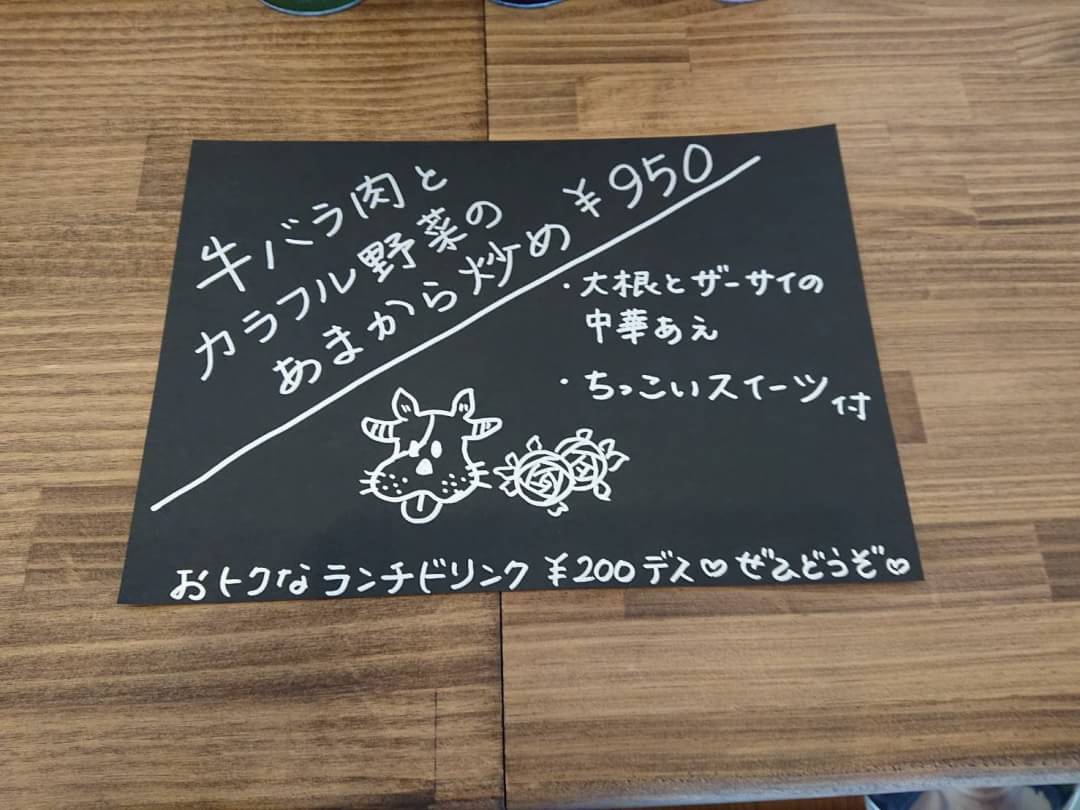 牛バラ肉と
カラフル野菜の
あまから炒め ¥950
・大根とザーサイの
中華あえ
・ちっこいスイーツ付
おトクなランチドリンク ¥200デス♡ぜひどうぞ♡